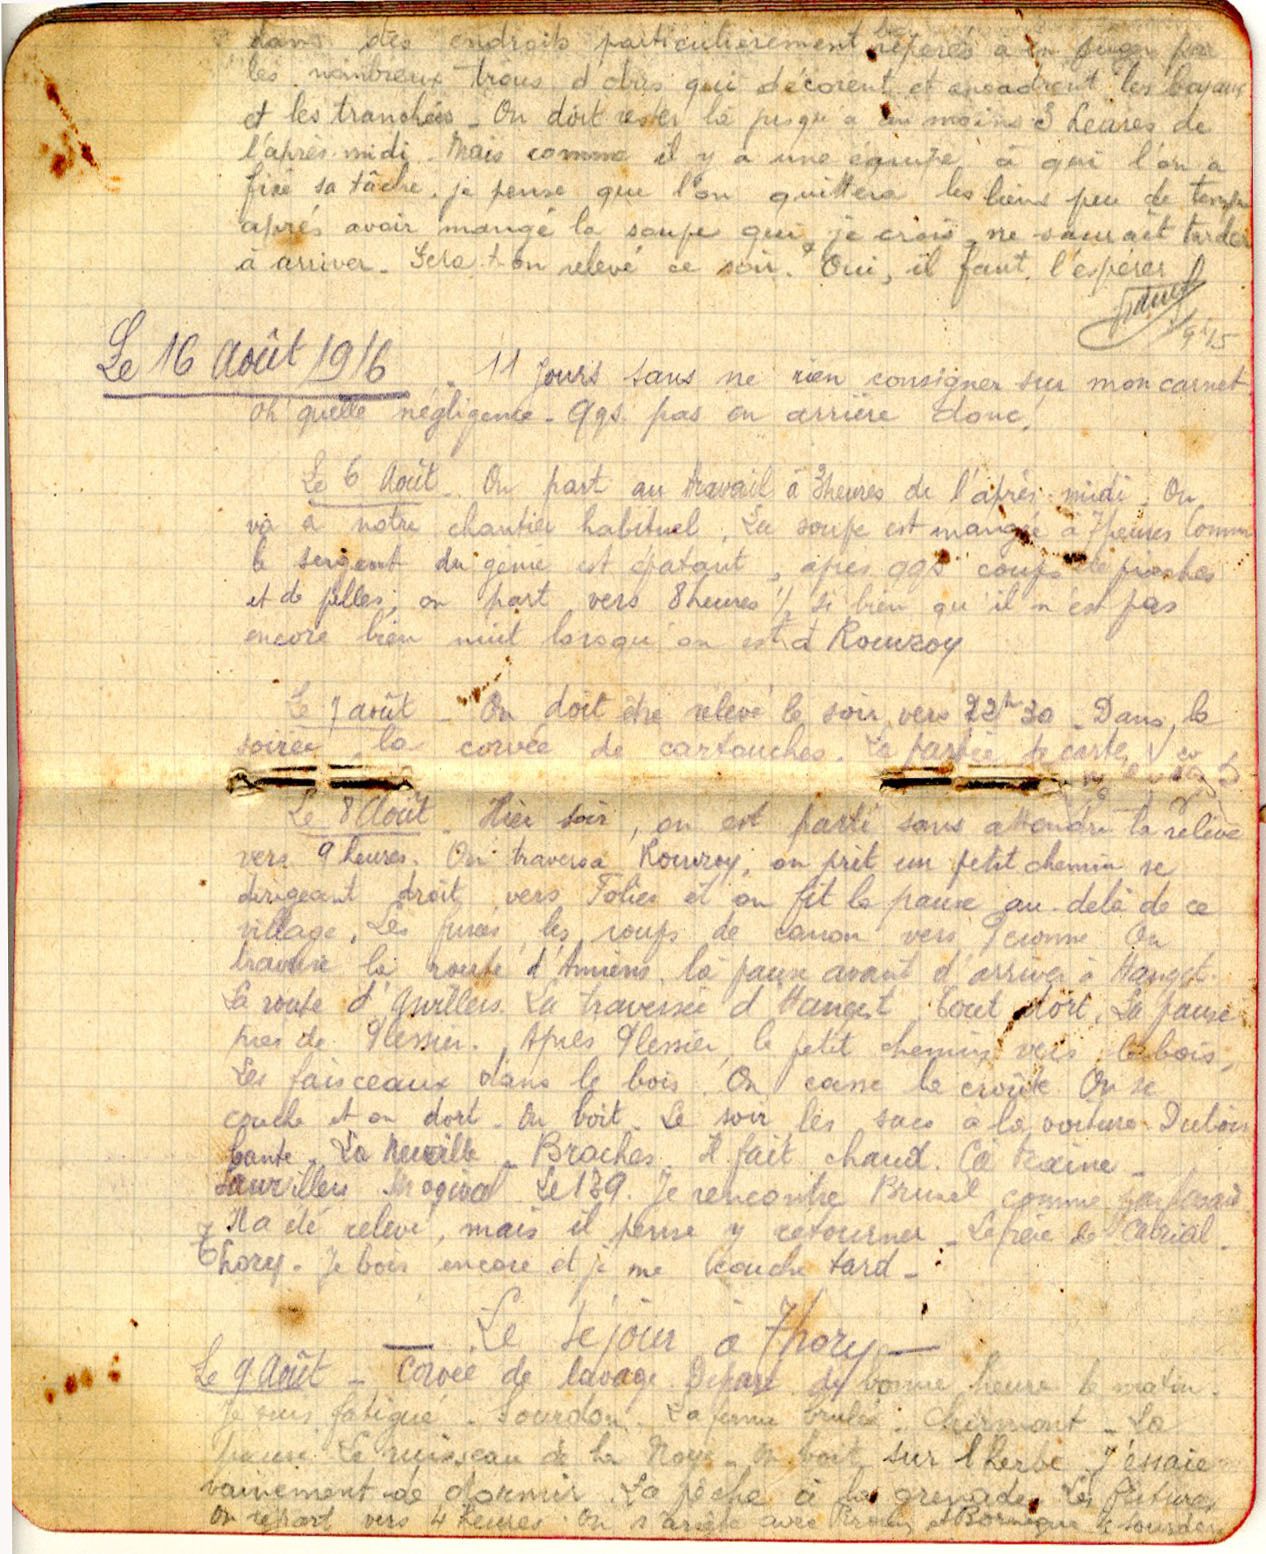 dans des endroits particulièrement repérés à en juger par
les nombreux trous d'obus qui décorent et encadrent les boyaux
et les tranchées - On doit rester là jusqu'à au moins 3 heures de
l'après-midi. Mais comme il y a une équipe à qui l'on a
fixé sa tâche, je pense que l'on quittera les lieux peu de temps
après avoir mangé la soupe qui, je crois, ne saurait tarder
à arriver. Sera-t-on relevé ce soir. Oui, il faut l'espérer
Le 16 Août 1916 - 11 jours sans ne rien consigner sur mon carnet
oh quelle négligence - Qqs pas en arrière donc.
Le 6 Août - On part au travail à 3 heures de l'après-midi. On
va à notre chantier habituel. La soupe est mangée à 7 heures Comme
le sergent du génie est épatant, après qqs coups de pioches
et de pelles, on part vers 8 heures 1/2 si bien qu'il n'est pas
encore bien nuit lorsqu'on est à Rouvroy
Le 7 août - On doit être relevé le soir vers 22h30 - Dans la
soirée la corvée de cartouches. La partie de cartes
Le 8 Août - Hier soir, on est parti sans attendre la relève
vers 9 heures. On traversa Rouvroy, on prit un petit chemin se
dirigeant droit vers Folies et on fit la pause au-delà de ce
village. Les fusées, les coups de canon vers Péronne On
traverse la route d'Amiens. la pause avant d'arriver à Hangest.
La route d'Arvillers. La traversée d'Hangest. Tout dort. La pause
près de Plessier. Après Plessier, le petit chemin vers le bois,
Les faisceaux dans le bois. On casse la croûte On se
couche et on dort. On boit. Le soir les sacs à la voiture. Dubois
chante - La Neuville - Braches Il fait chaud. Ça traine -
Sauvillers Mogival Le 139. Je rencontre Brunel comme
Il a été relevé, mais il pense y retourner - Le père de Cabrial -
Thory. Je bois encore et je me couche tard -
— Le séjour à Thory —
Le 9 Août - Corvée de lavage. Départ de bonne heure le matin.
Je suis fatigué. Sourdon. La ferme brulée. Chirmont - La
pause. Le ruisseau de la Noye. On boit sur l'herbe. J'essaie
vainement de dormir. La pêche à la grenade. Les fritures
On repart vers 4 heures. On s'arrête avec et à Sourdon